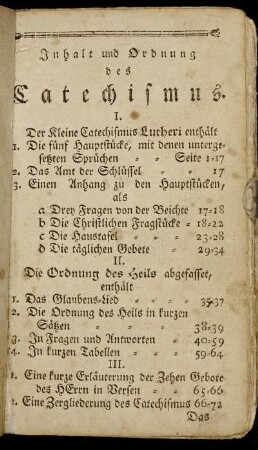 Inhalt und Ordnung
des
Catechismus.
I.
Der Kleine Catechismus Lutheri enthält
1. Die fünf Hauptstücke, mit denen unterge-
setzten Sprüchen - - Seite 1-17
2. Das Amt der Schlüssel - - 17
3. Einen Anhang zu den Hauptstücken,
als
a Drey Fragen von der Beichte 17-18
b Die Christlichen Fragstücke - 18-22
c Die Haustafel - - 23-28
d Die täglichen Gebete - 29-34
II.
Die Ordnung des Heils abgefasset,
enthält
1. Das Glaubens-Lied - - - 35-37
2. Die Ordnung des Heils in kurzen
Sätzen - - - - 38-39
3. In Fragen und Antworten - 40-59
4. In kurzen Tabellen - - 59-64
III.
1. Eine kurze Erläuterung der Zehen Gebote
des HErrn in Versen - - 65-66
2. Eine Zergliederung des Catechismus 66-72
Das